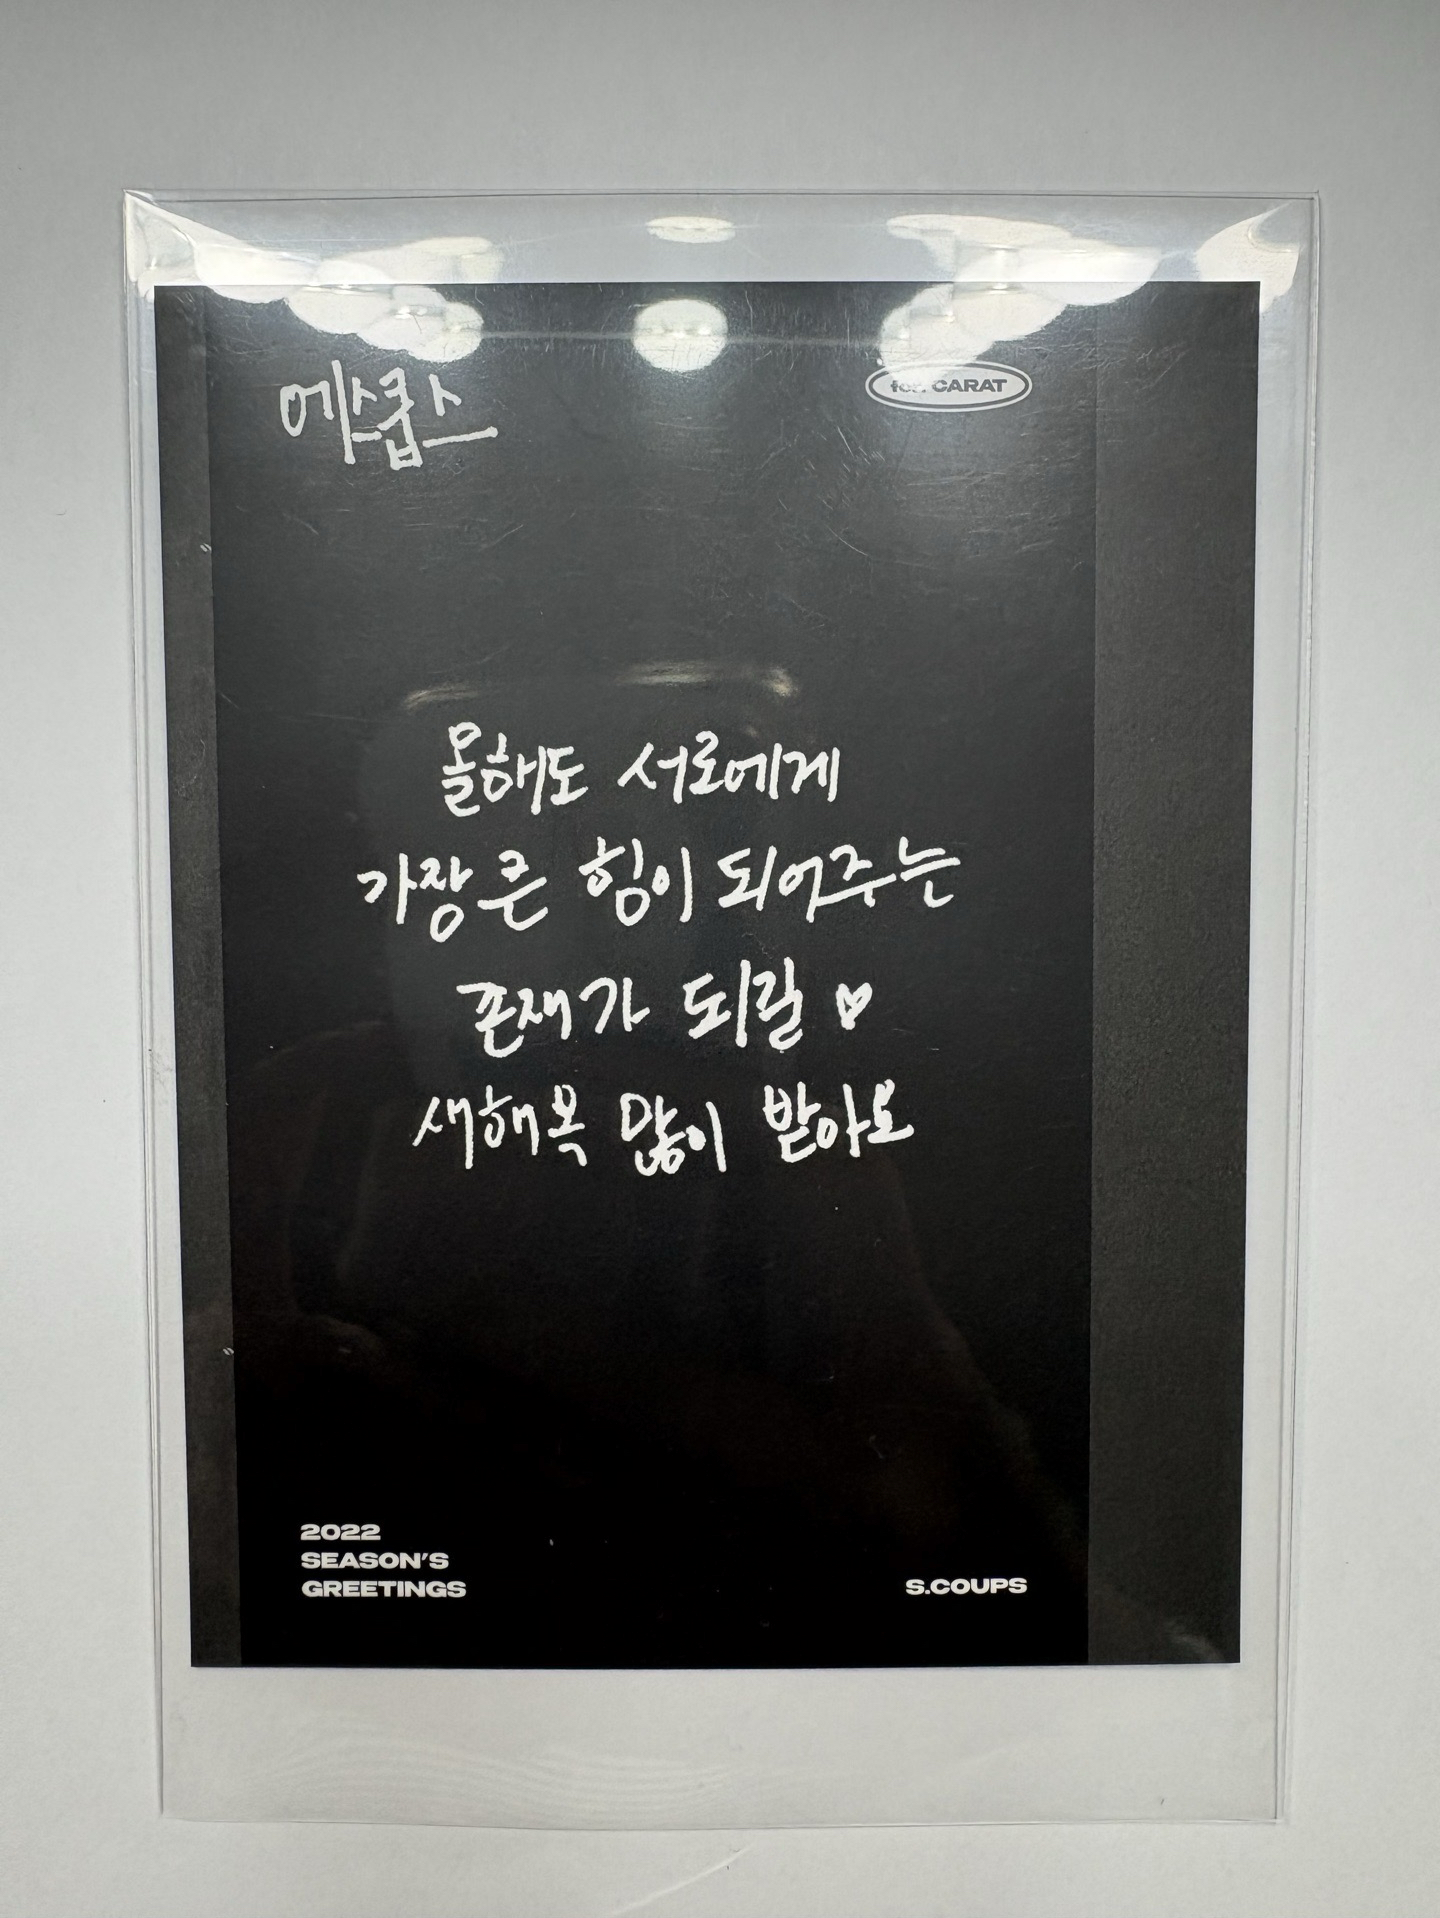 에스쿱스
for. CARAT
올해도 서로에게
가장 큰 힘이 되어주는
존재가 되길 ♡
새해복 많이 받아요
2022
SEASON'S
GREETINGS
S.COUPS